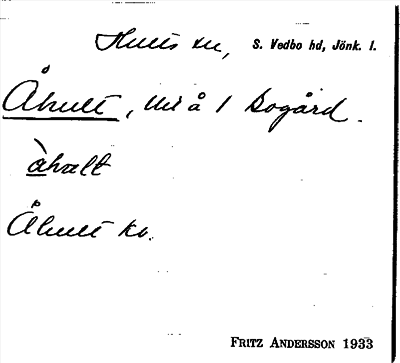 Hults sn, S. Vedbo hd, Jönk. l.
Åhult, på 1 bogård.
åhult
Åhult kv.
FRITZ ANDERSSON 1933